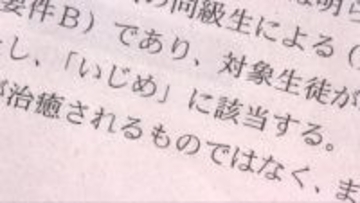 の同級生による（
要件Ｂ）であり、対象生徒が
し、「いじめ」に該当する。
が治癒されるものではなく、ま